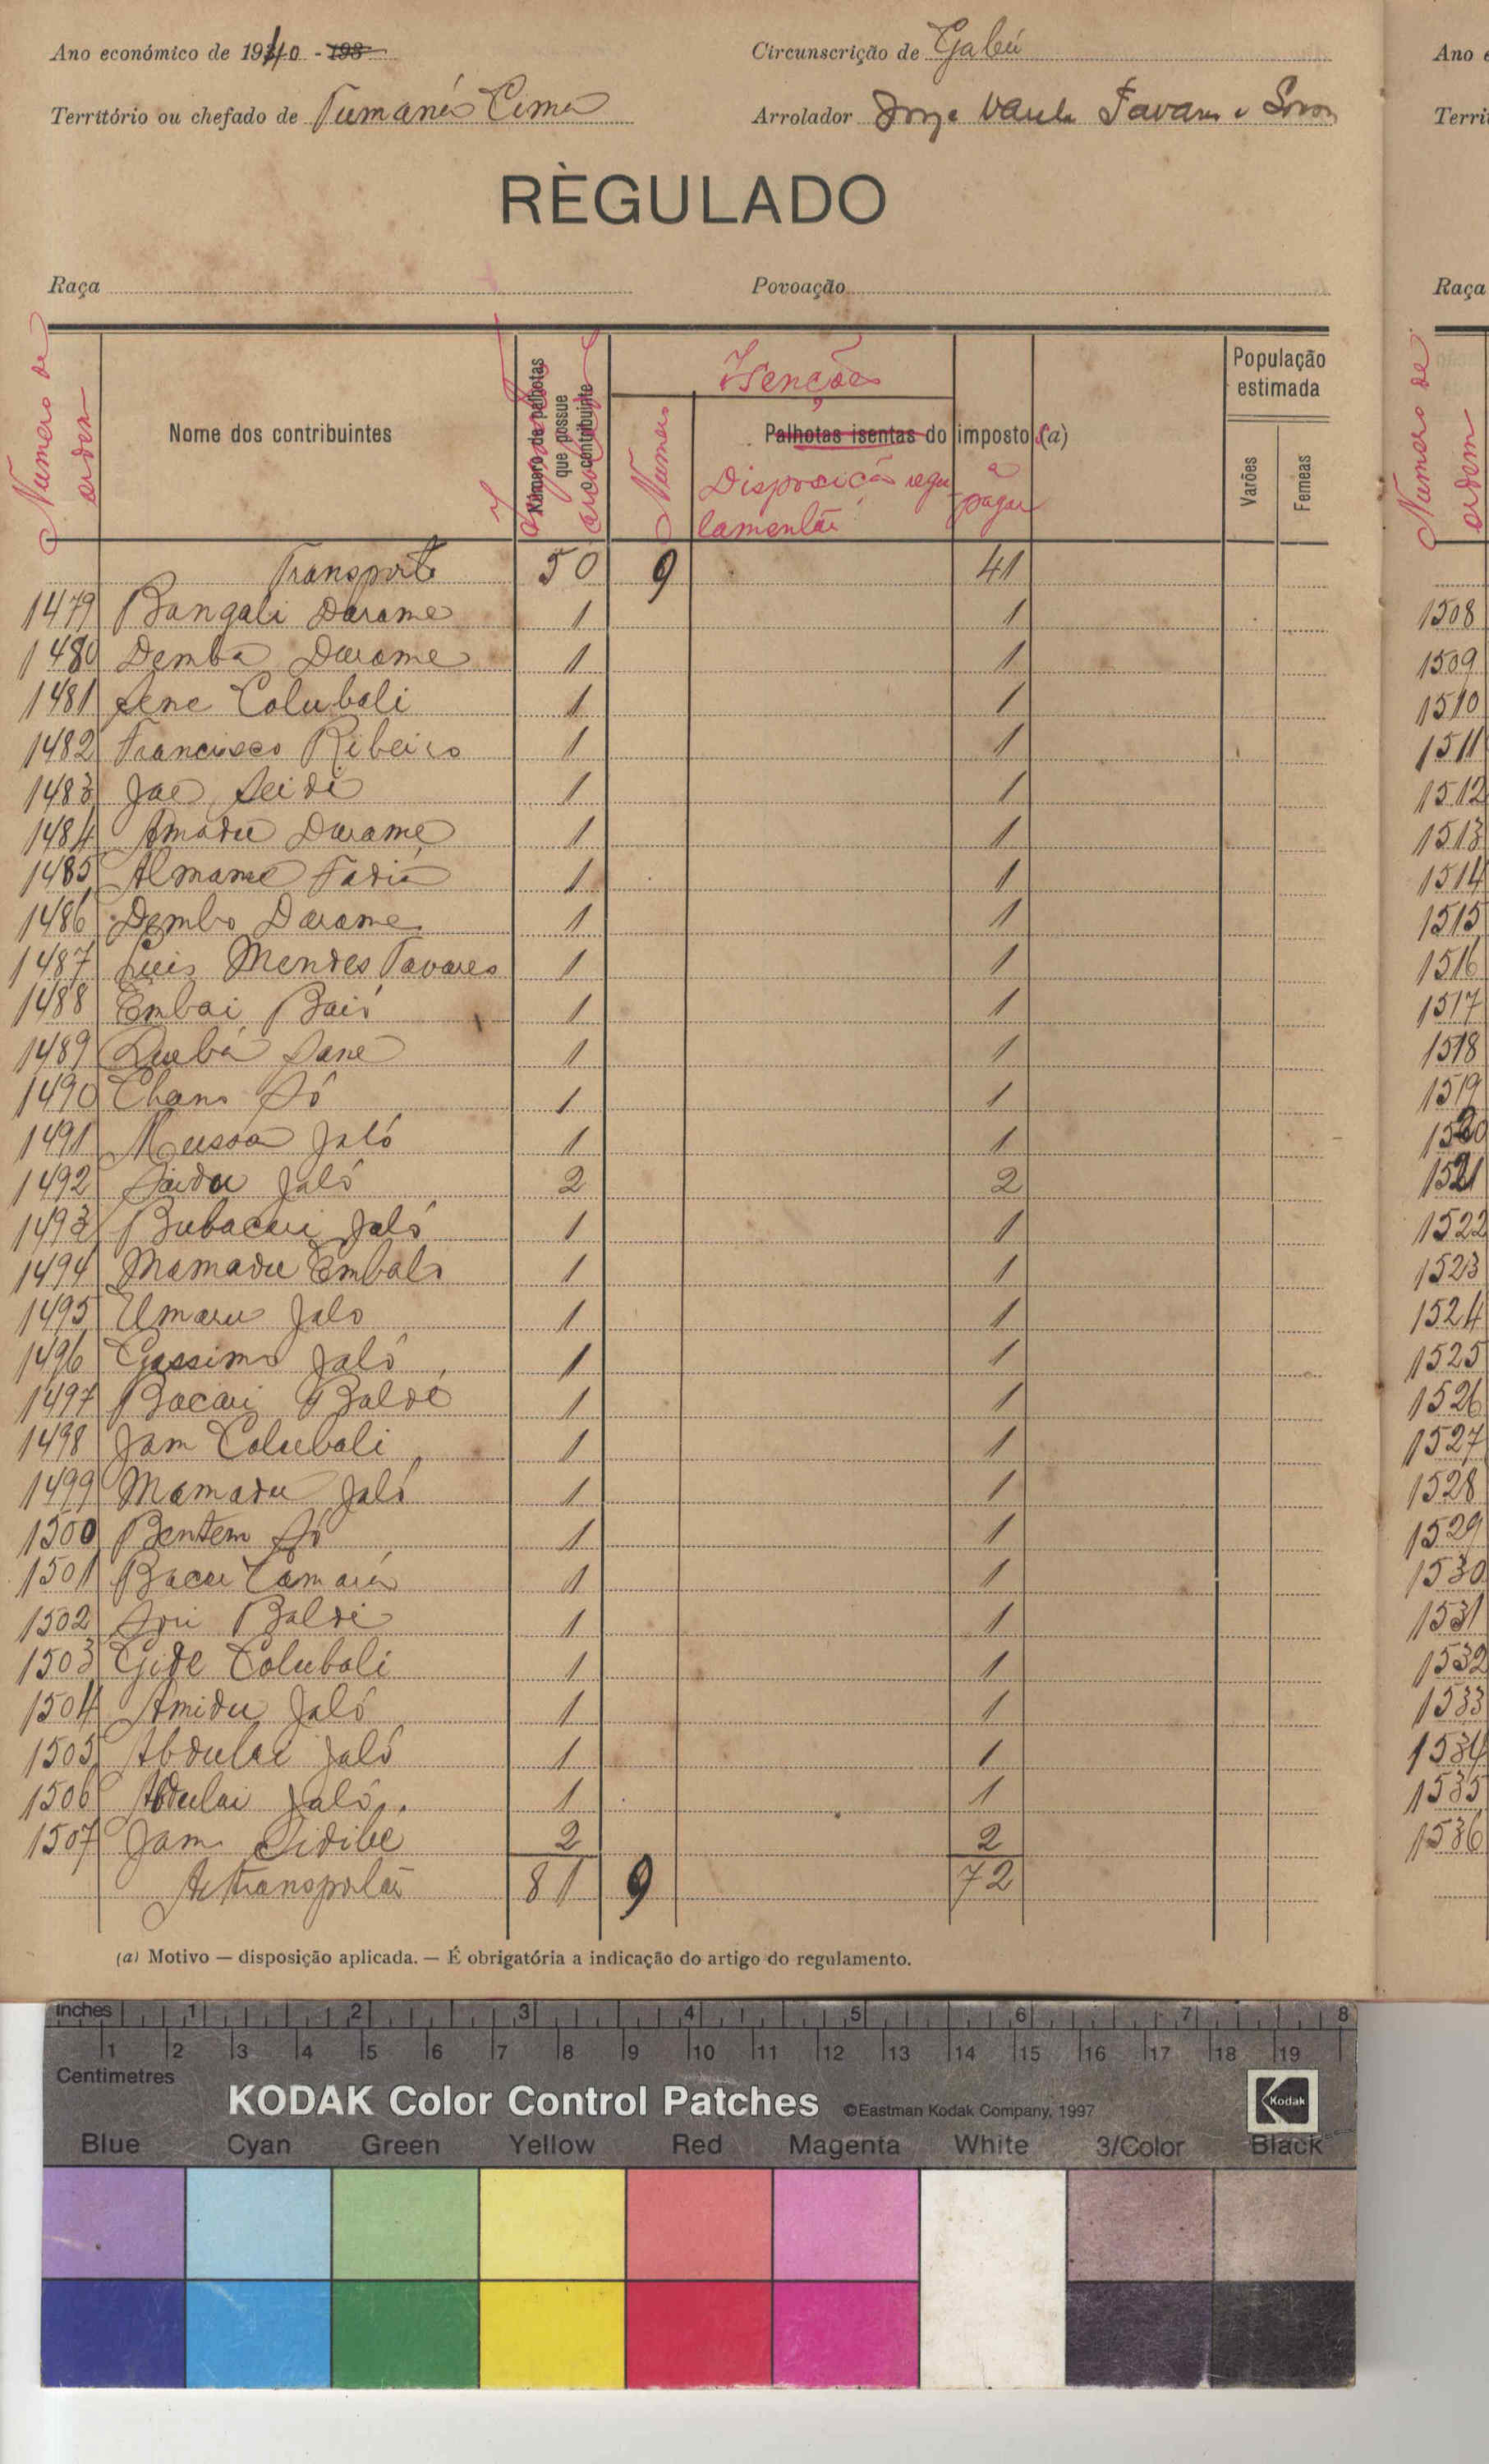 Ano económico de 1940 - 193
Circunscrição de Gabú
Território ou chefado de Tumaná Cima
Arrolador Jorge Tavares
RÈGULADO
Raça
Povoação
Numero de ordem
Nome dos contribuintes
Número de palhotas que possue o contribuinte
Isenções
Numero
Palhotas isentas do imposto (a)
Disposição regulamentar
a pagar
População estimada
Varões
Femeas
Transporte 50 9 41
1479 Bangali Darame 1 1
1480 Demba Darame 1 1
1481 Sene Colubali 1 1
1482 Francisco Ribeiro 1 1
1483 Jae Seidi 1 1
1484 Amadu Darame 1 1
1485 Almame Fadiá 1 1
1486 Dembo Darame 1 1
1487 Luis Mendes Tavares 1 1
1488 Embai Baió 1 1
1489 Quebá Sane 1 1
1490 Cherno Só 1 1
1491 Mussa Jaló 1 1
1492 Saidu Jaló 2 2
1493 Bubacari Jaló 1 1
1494 Mamadu Embaló 1 1
1495 Umaru Jalo 1 1
1496 Gassimo Jaló 1 1
1497 Bacari Baldé 1 1
1498 Jam Colubali 1 1
1499 Mamadu Jaló 1 1
1500 Bentem Só 1 1
1501 Bacar Camará 1 1
1502 Sori Baldé 1 1
1503 Gide Colubali 1 1
1504 Amidu Jaló 1 1
1505 Abdulai Jaló 1 1
1506 Abdulai Jaló 1 1
1507 Jam Sidibé 2 2
A transportar 81 9 72
(a) Motivo — disposição aplicada. — É obrigatória a indicação do artigo do regulamento.
Ano
Terri
Raça
Numero de ordem
1508
1509
1510
1511
1512
1513
1514
1515
1516
1517
1518
1519
1520
1521
1522
1523
1524
1525
1526
1527
1528
1529
1530
1531
1532
1533
1534
1535
1536
inches 1 2 3 4 5 6 7 8
1 2 3 4 5 6 7 8 9 10 11 12 13 14 15 16 17 18 19
Centimetres
KODAK Color Control Patches ©Eastman Kodak Company, 1997 Kodak
Blue Cyan Green Yellow Red Magenta White 3/Color Black